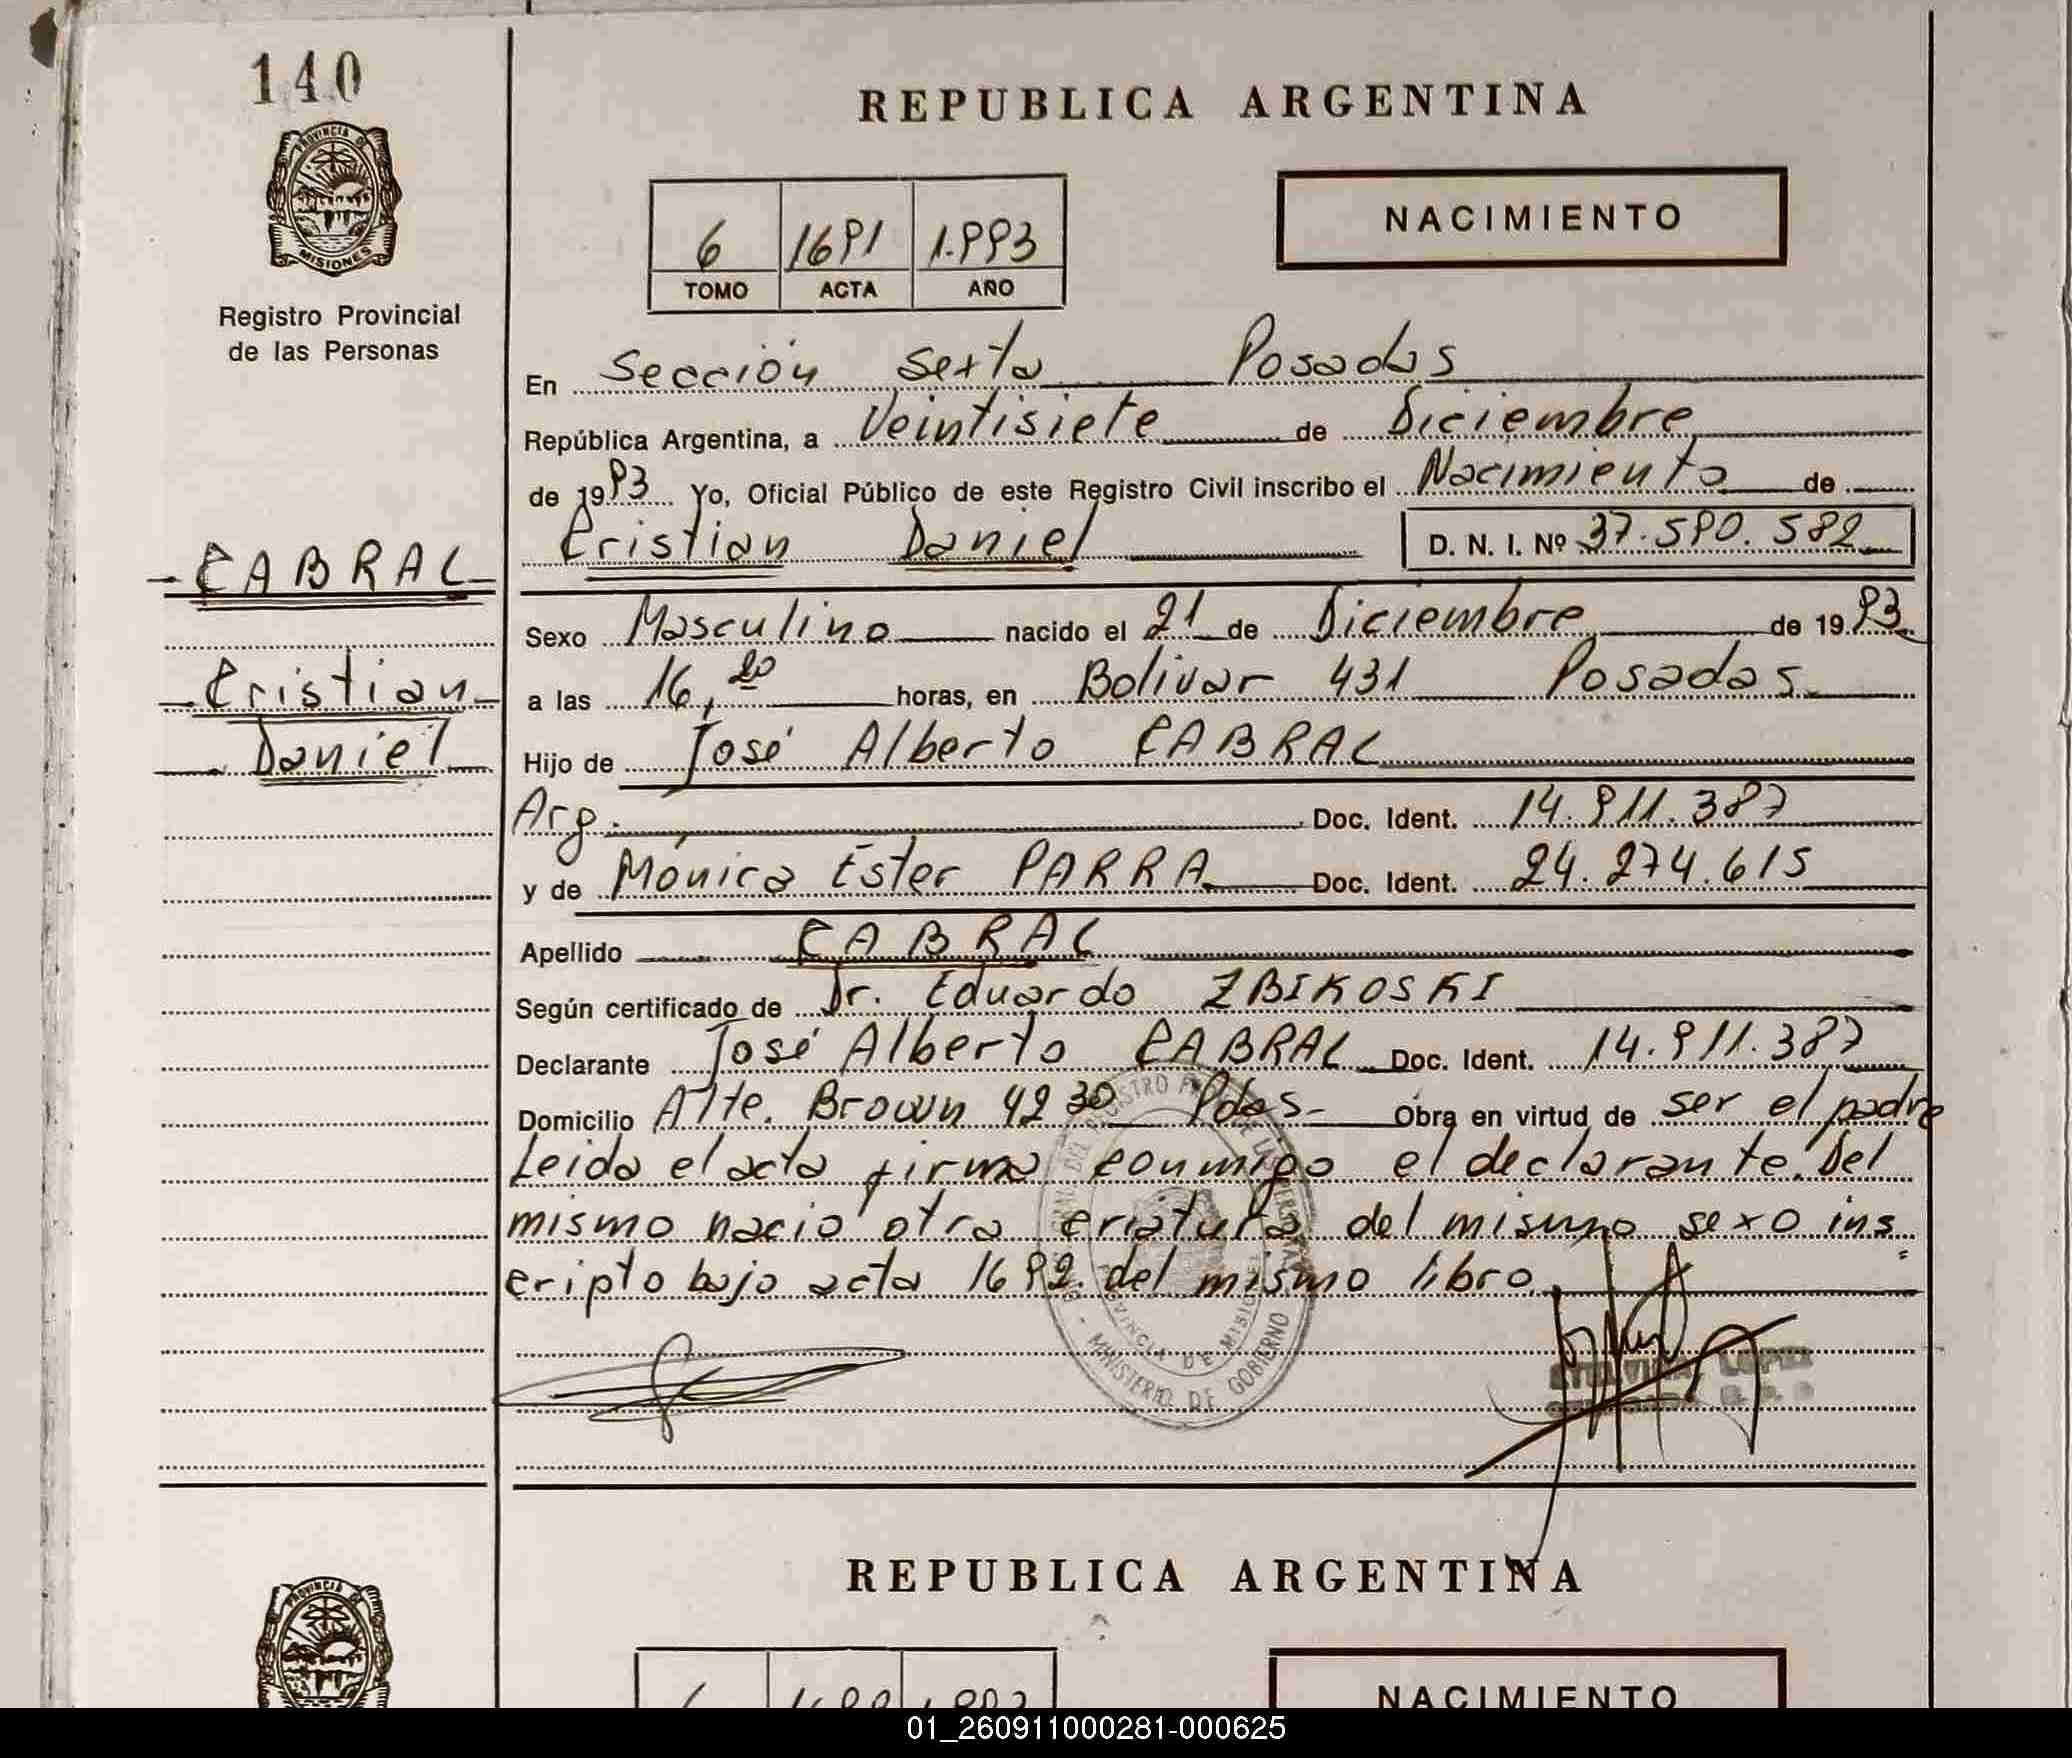 140
REPUBLICA ARGENTINA
PROVINCIA DE
MISIONES
6 1691 1.993
TOMO ACTA AÑO
NACIMIENTO
Registro Provincial
de las Personas
En Sección Sexta Posadas
República Argentina, a Veintisiete de Diciembre
de 1993 Yo, Oficial Público de este Registro Civil inscribo el Nacimiento de
Cristian Daniel D. N. I. Nº 37.590.582
CABRAL
Cristian
Daniel
Sexo Masculino nacido el 21 de Diciembre de 1993
a las 16,20 horas, en Bolivar 431 Posadas
Hijo de José Alberto CABRAL
Arg. Doc. Ident. 14.911.387
y de Mónica Ester PARRA Doc. Ident. 24.274.615
Apellido CABRAL
Según certificado de Dr. Eduardo ZBIKOSKI
Declarante José Alberto CABRAL Doc. Ident. 14.911.387
Domicilio Alte. Brown 4230 Pdas- Obra en virtud de ser el padre
Leida el acta firma conmigo el declarante. Del
mismo nacio otra criatura del mismo sexo ins
cripto bajo acta 1692 del mismo libro.
MINISTERIO DE GOBIERNO
PROVINCIA DE MISIONES
LOPEZ
REPUBLICA ARGENTINA
PROVINCIA DE
NACIMIENTO
01_260911000281-000625